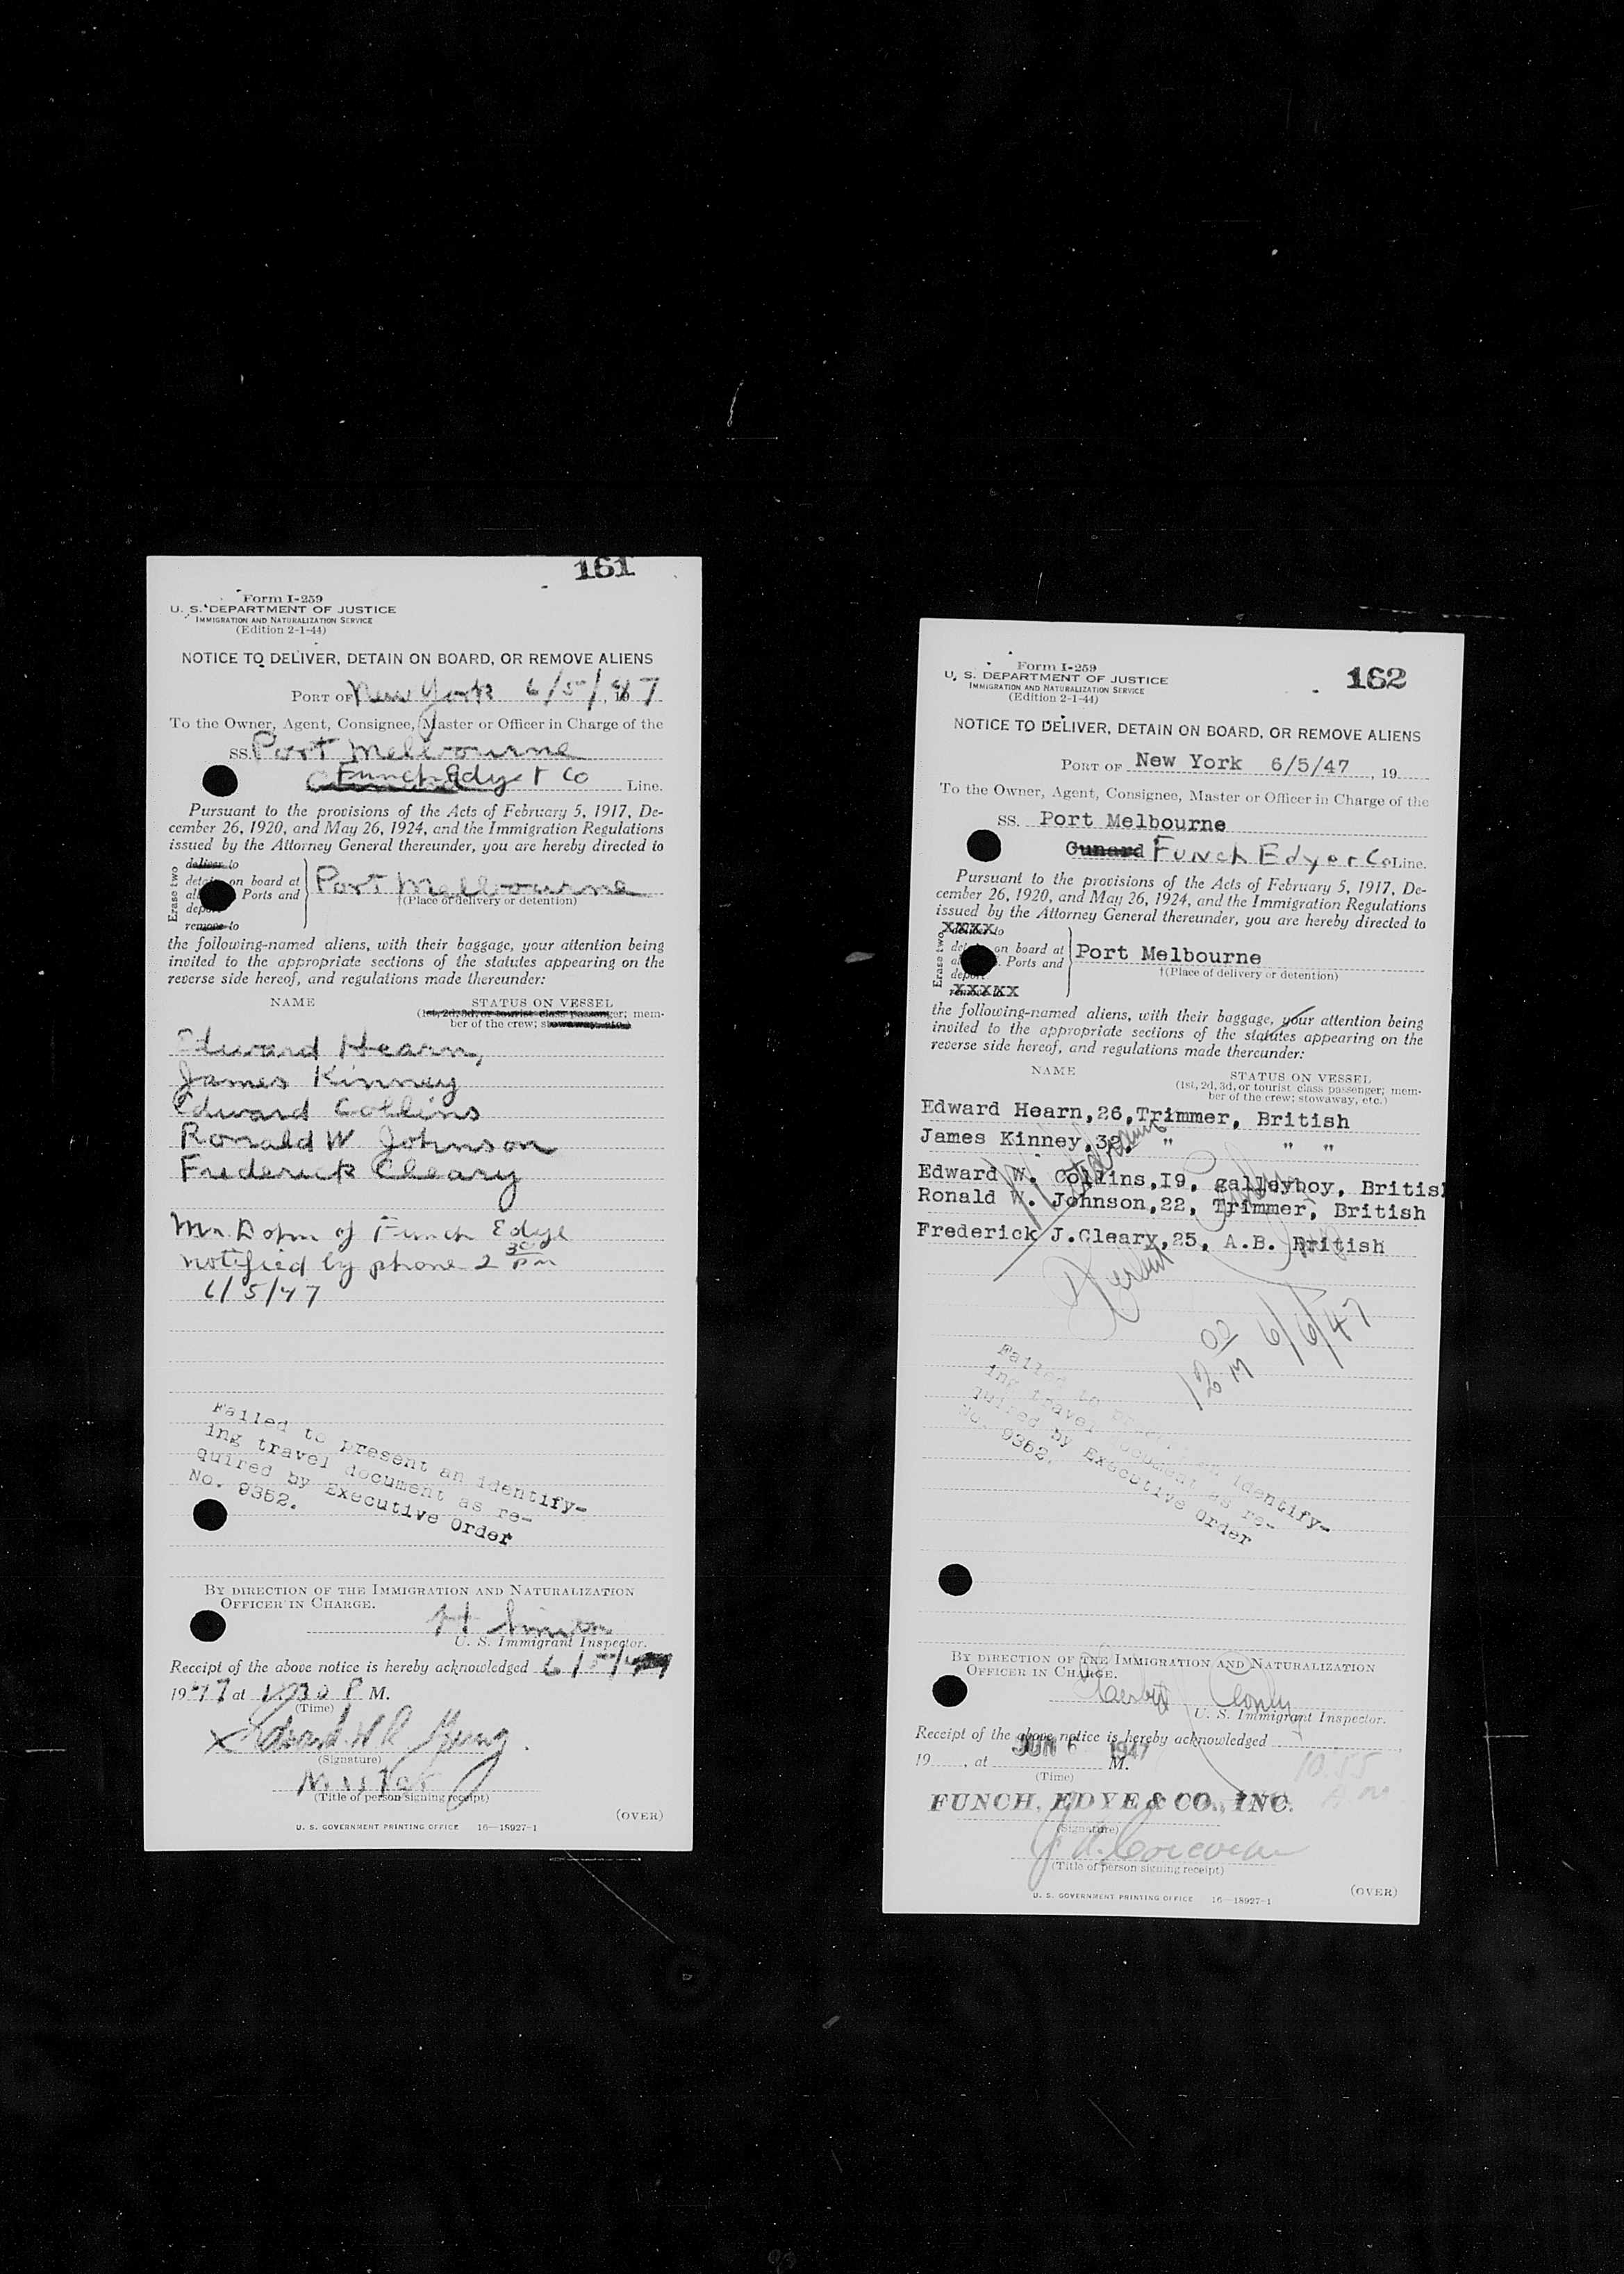 161
Form I-259
U. S. DEPARTMENT OF JUSTICE
IMMIGRATION AND NATURALIZATION SERVICE
(Edition 2-1-44)
NOTICE TO DELIVER, DETAIN ON BOARD, OR REMOVE ALIENS
PORT OF New York 6/5/47
To the Owner, Agent, Consignee, Master or Officer in Charge of the
SS. Port Melbourne
Funch Edye & Co Line.
Pursuant to the provisions of the Acts of February 5, 1917, De-
cember 26, 1920, and May 26, 1924, and the Immigration Regulations
issued by the Attorney General thereunder, you are hereby directed to
Erase two
deliver to
on board at
Ports and
remove to
Port Melbourne
†(Place of delivery or detention)
the following-named aliens, with their baggage, your attention being
invited to the appropriate sections of the statutes appearing on the
reverse side hereof, and regulations made thereunder:
NAME STATUS ON VESSEL
(1st, 2d, 3d, or tourist class passenger; mem-
ber of the crew; stowaway, etc.)
Edward Hearn,
James Kinney
Edward Collins
Ronald W Johnson
Frederick Cleary
Mr. Dohm of Funch Edye
notified by phone 2 30 pm
6/5/47
Failed to present an identify-
ing travel document as re-
quired by Executive Order
No. 9352.
BY DIRECTION OF THE IMMIGRATION AND NATURALIZATION
OFFICER IN CHARGE.
U. S. Immigrant Inspector.
Receipt of the above notice is hereby acknowledged 6/5/47
1947 at 30 P M.
(Time)
(Signature)
Master
(Title of person signing receipt)
(OVER)
U. S. GOVERNMENT PRINTING OFFICE 16—18927-1
162
Form I-259
U. S. DEPARTMENT OF JUSTICE
IMMIGRATION AND NATURALIZATION SERVICE
(Edition 2-1-44)
NOTICE TO DELIVER, DETAIN ON BOARD, OR REMOVE ALIENS
PORT OF New York 6/5/47, 19
To the Owner, Agent, Consignee, Master or Officer in Charge of the
SS. Port Melbourne
Cunard Funch Edye & Co Line.
Pursuant to the provisions of the Acts of February 5, 1917, De-
cember 26, 1920, and May 26, 1924, and the Immigration Regulations
issued by the Attorney General thereunder, you are hereby directed to
Erase two
XXXX to
on board at
Ports and
XXXXX
Port Melbourne
†(Place of delivery or detention)
the following-named aliens, with their baggage, your attention being
invited to the appropriate sections of the statutes appearing on the
reverse side hereof, and regulations made thereunder:
NAME STATUS ON VESSEL
(1st, 2d, 3d, or tourist class passenger; mem-
ber of the crew; stowaway, etc.)
Edward Hearn,26,Trimmer, British
James Kinney,32, " " "
Edward W. Collins,19, galleyboy, British
Ronald W. Johnson,22, Trimmer, British
Frederick J.Cleary,25, A.B. British
12 00 M 6/6/47
Failed to present an identify-
ing travel document as re-
quired by Executive Order
No. 9352.
BY DIRECTION OF THE IMMIGRATION AND NATURALIZATION
OFFICER IN CHARGE.
U. S. Immigrant Inspector.
Receipt of the above notice is hereby acknowledged
JUN 6 1947
19 , at M.
(Time)
10:55
A M
FUNCH, EDYE & CO., INC.
(Signature)
(Title of person signing receipt)
(OVER)
U. S. GOVERNMENT PRINTING OFFICE 16—18927-1